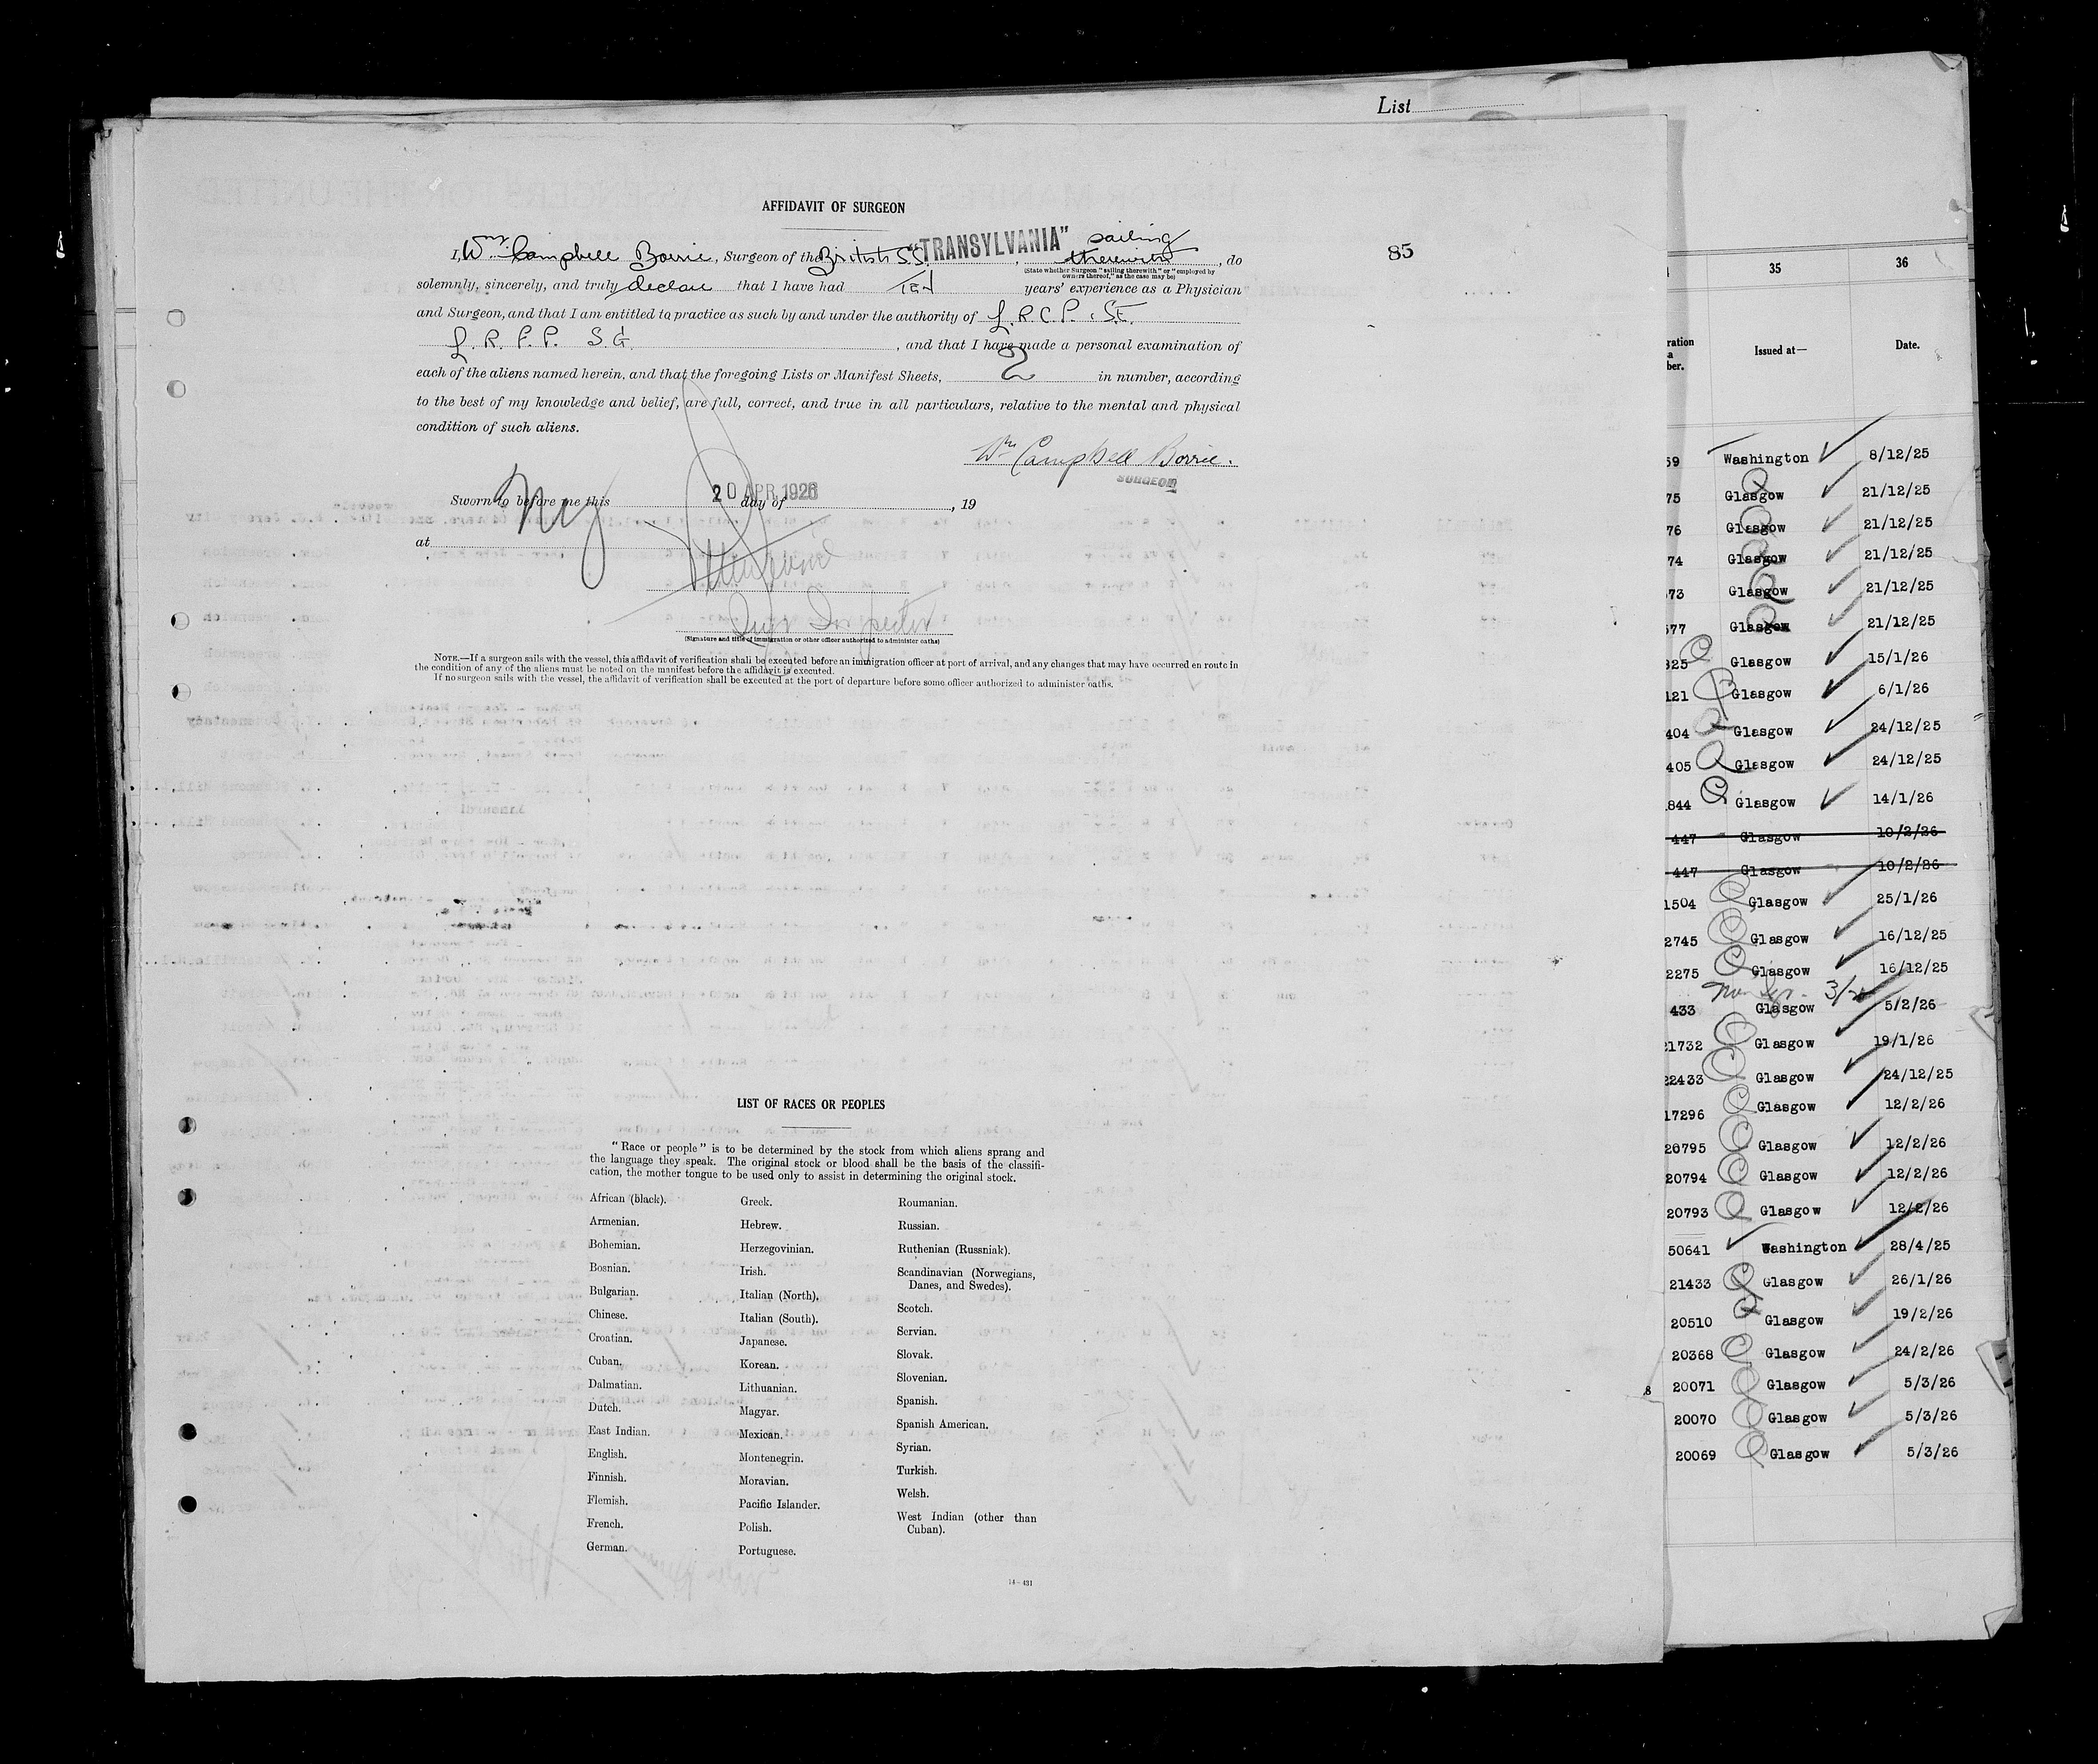 List
AFFIDAVIT OF SURGEON
85
I, Wm. Campbell Borrie, Surgeon of the British S.S. "TRANSYLVANIA", sailing therewith, do
(State whether Surgeon "sailing therewith" or "employed by owners thereof," as the case may be)
solemnly, sincerely, and truly declare that I have had TEN years' experience as a Physician
and Surgeon, and that I am entitled to practice as such by and under the authority of L.R.C.P. & S.E.
L.R.F.P. S.G. , and that I have made a personal examination of
each of the aliens named herein, and that the foregoing Lists or Manifest Sheets, 2 in number, according
to the best of my knowledge and belief, are full, correct, and true in all particulars, relative to the mental and physical
condition of such aliens.
Wm Campbell Borrie.
SURGEON
Sworn to before me this 20 APR 1926 day of , 19
at NY
Inspector
(Signature and title of immigration or other officer authorized to administer oaths)
NOTE.—If a surgeon sails with the vessel, this affidavit of verification shall be executed before an immigration officer at port of arrival, and any changes that may have occurred en route in
the condition of any of the aliens must be noted on the manifest before the affidavit is executed.
If no surgeon sails with the vessel, the affidavit of verification shall be executed at the port of departure before some officer authorized to administer oaths.
LIST OF RACES OR PEOPLES
"Race or people" is to be determined by the stock from which aliens sprang and
the language they speak. The original stock or blood shall be the basis of the classifi-
cation, the mother tongue to be used only to assist in determining the original stock.
African (black).
Armenian.
Bohemian.
Bosnian.
Bulgarian.
Chinese.
Croatian.
Cuban.
Dalmatian.
Dutch.
East Indian.
English.
Finnish.
Flemish.
French.
German.
Greek.
Hebrew.
Herzegovinian.
Irish.
Italian (North).
Italian (South).
Japanese.
Korean.
Lithuanian.
Magyar.
Mexican.
Montenegrin.
Moravian.
Pacific Islander.
Polish.
Portuguese.
Roumanian.
Russian.
Ruthenian (Russniak).
Scandinavian (Norwegians,
Danes, and Swedes).
Scotch.
Servian.
Slovak.
Slovenian.
Spanish.
Spanish American.
Syrian.
Turkish.
Welsh.
West Indian (other than
Cuban).
14—431
35 36
ration
a
ber. Issued at— Date.
59 Washington 8/12/25
75 Glasgow 21/12/25
76 Glasgow 21/12/25
74 Glasgow 21/12/25
73 Glasgow 21/12/25
577 Glasgow 21/12/25
325 Glasgow 15/1/26
121 Glasgow 6/1/26
404 Glasgow 24/12/25
405 Glasgow 24/12/25
844 Glasgow 14/1/26
447 Glasgow 10/2/26
447 Glasgow 10/2/26
1504 Glasgow 25/1/26
2745 Glasgow 16/12/25
2275 Glasgow 16/12/25
433 Glasgow 5/2/26
21732 Glasgow 19/1/26
22433 Glasgow 24/12/25
17296 Glasgow 12/2/26
20795 Glasgow 12/2/26
20794 Glasgow 12/2/26
20793 Glasgow 12/2/26
50641 Washington 28/4/25
21433 Glasgow 26/1/26
20510 Glasgow 19/2/26
20368 Glasgow 24/2/26
8 20071 Glasgow 5/3/26
20070 Glasgow 5/3/26
20069 Glasgow 5/3/26